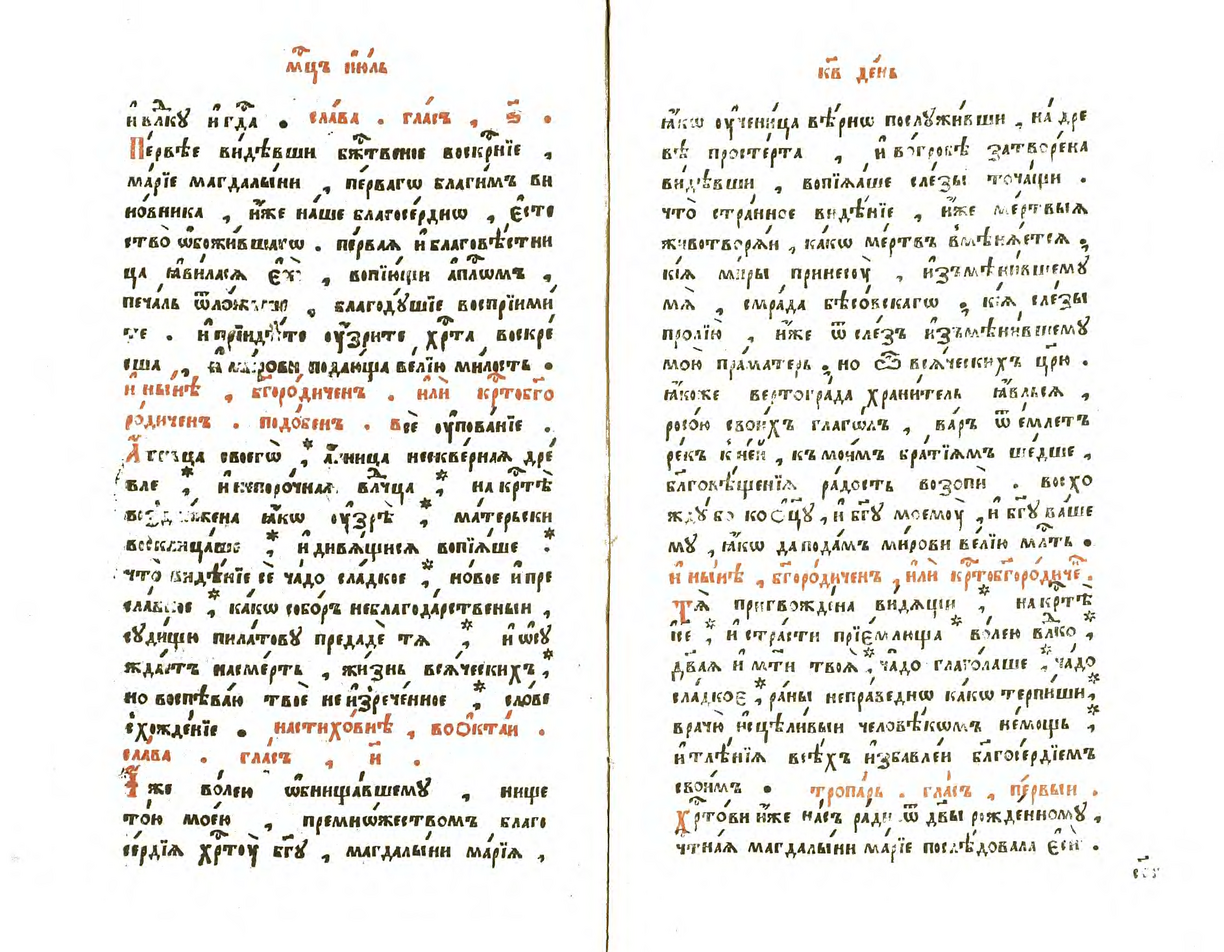 мц҃ъ і҆ю́ль
и҆ влⷣкꙋ и҆ гдⷭ҇а . сла́ва . гла́съ , ѕ҃ .
Пе́рвѣе ви́дѣвши бж҇твеное воскрⷭ҇нїе ,
мр҃їе магдалы́ни , пе́рвагѡ благи́мъ ви
но́вника , и҆́же на́ше благосе́рдиѡ , є҆сте
ство̀ ѡ҆божи́вшагѡ . пе́рваѧ и҆ благовѣ́стни
ца ꙗ҆ви́ласѧ , вопїю́щи а҆пⷭ҇лѡмъ ,
печа́ль , благодꙋ́шїе воспрїими
те . и҆ прїиди́те ᲂу҆́зрите хрⷭ҇та̀ воскре́
сша , и҆ ми́рови подаю́ща ве́лїю ми́лость .
и҆ ны́нѣ , бг҃оро́диченъ . и҆лѝ крⷭ҇тобг҃о
ро́диченъ . подо́бенъ . всѐ ᲂу҆пова́нїе .
А҆́гньца своегѡ̀ * а҆́гница нескве́рнаѧ дре́
вле * и҆ непоро́чнаѧ влⷣчца * на крⷭ҇тѣ̀
воздви́жена ꙗ҆́кѡ ᲂу҆зрѣ̀ * ма́терьски
восклица́ше * и҆ дивѧ́щисѧ вопїѧ́ше *
что̀ видѣ́нїе сѐ ча́до сла́дкое * но́вое и҆ пре
сла́вное * ка́кѡ собо́ръ неблагода́рственыи ,
сꙋди́щю пила́товꙋ предадѐ тѧ̀ * и҆ ѡ҆сꙋ
жда́етъ на сме́рть , жи́знь всѧ́ческихъ *
но воспѣва́ю твоѐ неи҆зрече́нное * сло́ве
схожде́нїе . на стихо́внѣ , во ѻ҆кта́и .
сла́ва . гла́съ , и҃ .
И҆́же во́лею ѡ҆бнища́вшемꙋ , нище
то́ю мое́ю , премно́жествомъ благо
се́рдїѧ хрⷭ҇тꙋ̀ бг҃ꙋ , магдалы́ни марі́ѧ ,
к҃в де́нь
ꙗ҆́кѡ ᲂу҆чени́ца вѣ́рнѡ послꙋжи́вши , на дре́
вѣ просте́рта , и҆ во гро́бѣ затворе́на
ви́дѣвши , вопїѧ́ше сле́зы точа́щи .
что̀ стра́нное видѣ́нїе , и҆́же ме́ртвыѧ
животворѧ́и , ка́кѡ ме́ртвъ вмѣнѧ́етсѧ ;
кі́ѧ ми́ры принесꙋ̀ , и҆змѣни́вшемꙋ
мѧ̀ , смра́да бѣсо́вскагѡ ; кі́ѧ сле́зы
пролїю̀ , и҆́же ѿ сле́зъ и҆змѣни́вшемꙋ
мою̀ прама́терь ; но ѽ всѧ́ческихъ цр҃ю .
ꙗ҆́коже вертогра́да храни́тель ꙗ҆́вльсѧ ,
росо́ю свои́хъ глаго́лъ , ва́ръ ѿе́млетъ
ре́къ к не́й , къ мои́мъ бра́тїѧмъ ше́дше ,
благовѣще́нїѧ ра́дость возопѝ . восхо
ждꙋ̀ бо ко ѻ҆ц҃ꙋ̀ , и҆ бг҃ꙋ моемꙋ̀ , и҆ бг҃ꙋ ва́ше
мꙋ , ꙗ҆́кѡ да пода́мъ ми́рови ве́лїю млⷭ҇ть .
и҆ ны́нѣ , бг҃оро́диченъ , и҆лѝ крⷭ҇тобг҃оро́диче .
Тѧ̀ пригвожде́на ви́дѧщи * на крⷭ҇тѣ̀
і҆с҃е * и҆ стра́сти прїе́млюща * во́лею влⷣко *
дв҃аѧ и҆ мт҃и твоѧ̀ * ча́до глаго́лаше * ча́до
сла́дкое * ра́ны непра́веднѡ ка́кѡ терпи́ши *
врачю̀ и҆сцѣли́выи человѣ́кѡмъ не́мощь *
и҆ тлѣ́нїѧ всѣ́хъ и҆зба́влеи благосе́рдїемъ
свои́мъ . тропа́рь . гла́съ , пе́рвыи .
Хрⷭ҇то́ви и҆́же на́съ ра́ди ѿ дв҃ы рожде́нномꙋ ,
чтⷭ҇наѧ магдалы́ни марі́е послѣ́довала є҆сѝ .